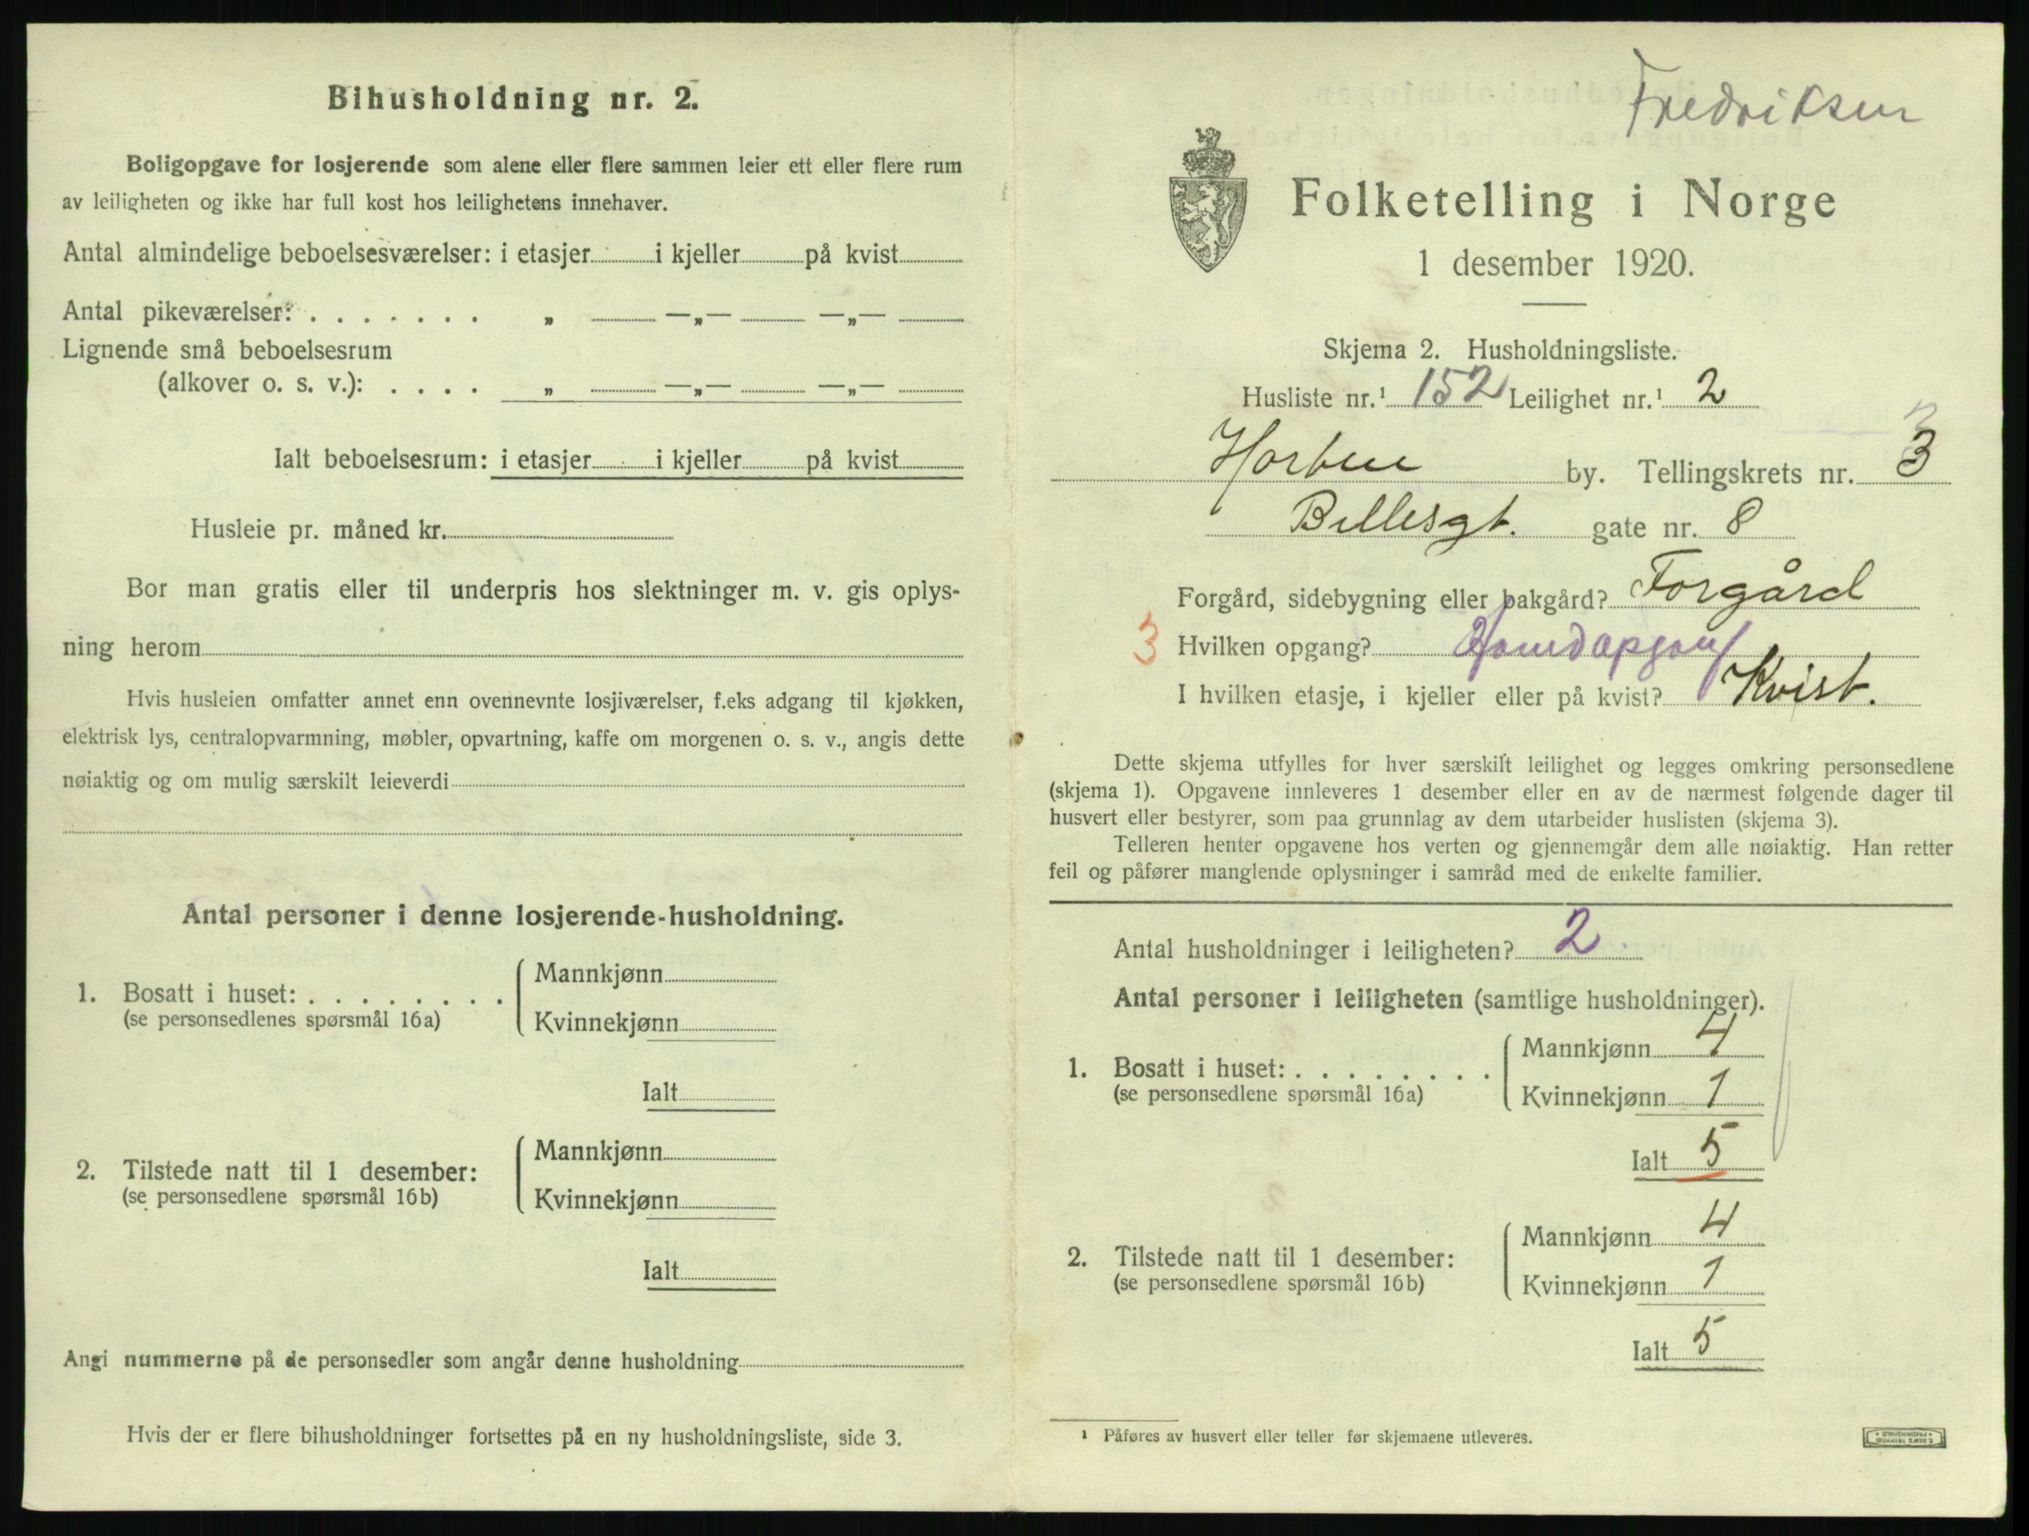 Bihusholdning nr. 2.
Boligopgave for losjerende som alene eller flere sammen leier ett eller flere rum
av leiligheten og ikke har full kost hos leilighetens innehaver.
Antal almindelige beboelsesværelser: i etasjer i kjeller på kvist
Antal pikeværelser: . . . . . . . „ —„— —„—
Lignende små beboelsesrum
(alkover o. s. v.): . . . . „ —„— —„—
Ialt beboelsesrum: i etasjer i kjeller på kvist
Husleie pr. måned kr.
Bor man gratis eller til underpris hos slektninger m. v. gis oplys-
ning herom
Hvis husleien omfatter annet enn ovennevnte losjiværelser, f.eks adgang til kjøkken,
elektrisk lys, centralopvarmning, møbler, opvartning, kaffe om morgenen o. s. v., angis dette
nøiaktig og om mulig særskilt leieverdi
Antal personer i denne losjerende-husholdning.
1. Bosatt i huset: . . . . . . . . Mannkjønn
(se personsedlenes spørsmål 16a) Kvinnekjønn
Ialt
2. Tilstede natt til 1 desember: Mannkjønn
(se personsedlene spørsmål 16b) Kvinnekjønn
Ialt
Angi nummerne på de personsedler som angår denne husholdning
Hvis der er flere bihusholdninger fortsettes på en ny husholdningsliste, side 3.
Fredriksen
Folketelling i Norge
1 desember 1920.
Skjema 2. Husholdningsliste.
Husliste nr.¹ 152 Leilighet nr.¹ 2
3
Horten by. Tellingskrets nr. 3
Billesgt. gate nr. 8
Forgård, sidebygning eller bakgård? Forgård
3 Hvilken opgang?
I hvilken etasje, i kjeller eller på kvist? Kvist.
Dette skjema utfylles for hver særskilt leilighet og legges omkring personsedlene
(skjema 1). Opgavene innleveres 1 desember eller en av de nærmest følgende dager til
husvert eller bestyrer, som paa grunnlag av dem utarbeider huslisten (skjema 3).
Telleren henter opgavene hos verten og gjennemgår dem alle nøiaktig. Han retter
feil og påfører manglende oplysninger i samråd med de enkelte familier.
Antal husholdninger i leiligheten? 2
Antal personer i leiligheten (samtlige husholdninger).
1. Bosatt i huset: . . . . . . . . Mannkjønn 4
(se personsedlene spørsmål 16a) Kvinnekjønn 1
Ialt 5
2. Tilstede natt til 1 desember: Mannkjønn 4
(se personsedlene spørsmål 16b) Kvinnekjønn 1
Ialt 5
¹ Påføres av husvert eller teller før skjemaene utleveres.